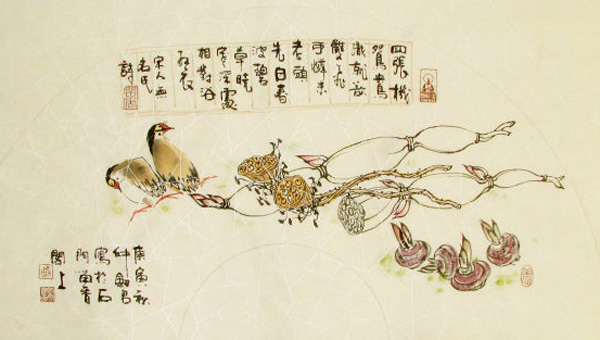 四張機
鴛鴦
織就欲
雙飛
可憐未
老頭
先白春
波碧
草曉
寒深處
相對浴
紅衣
宋人無
名氏
詩
庚寅秋
仲劍君
寫於石
門留香
閣上